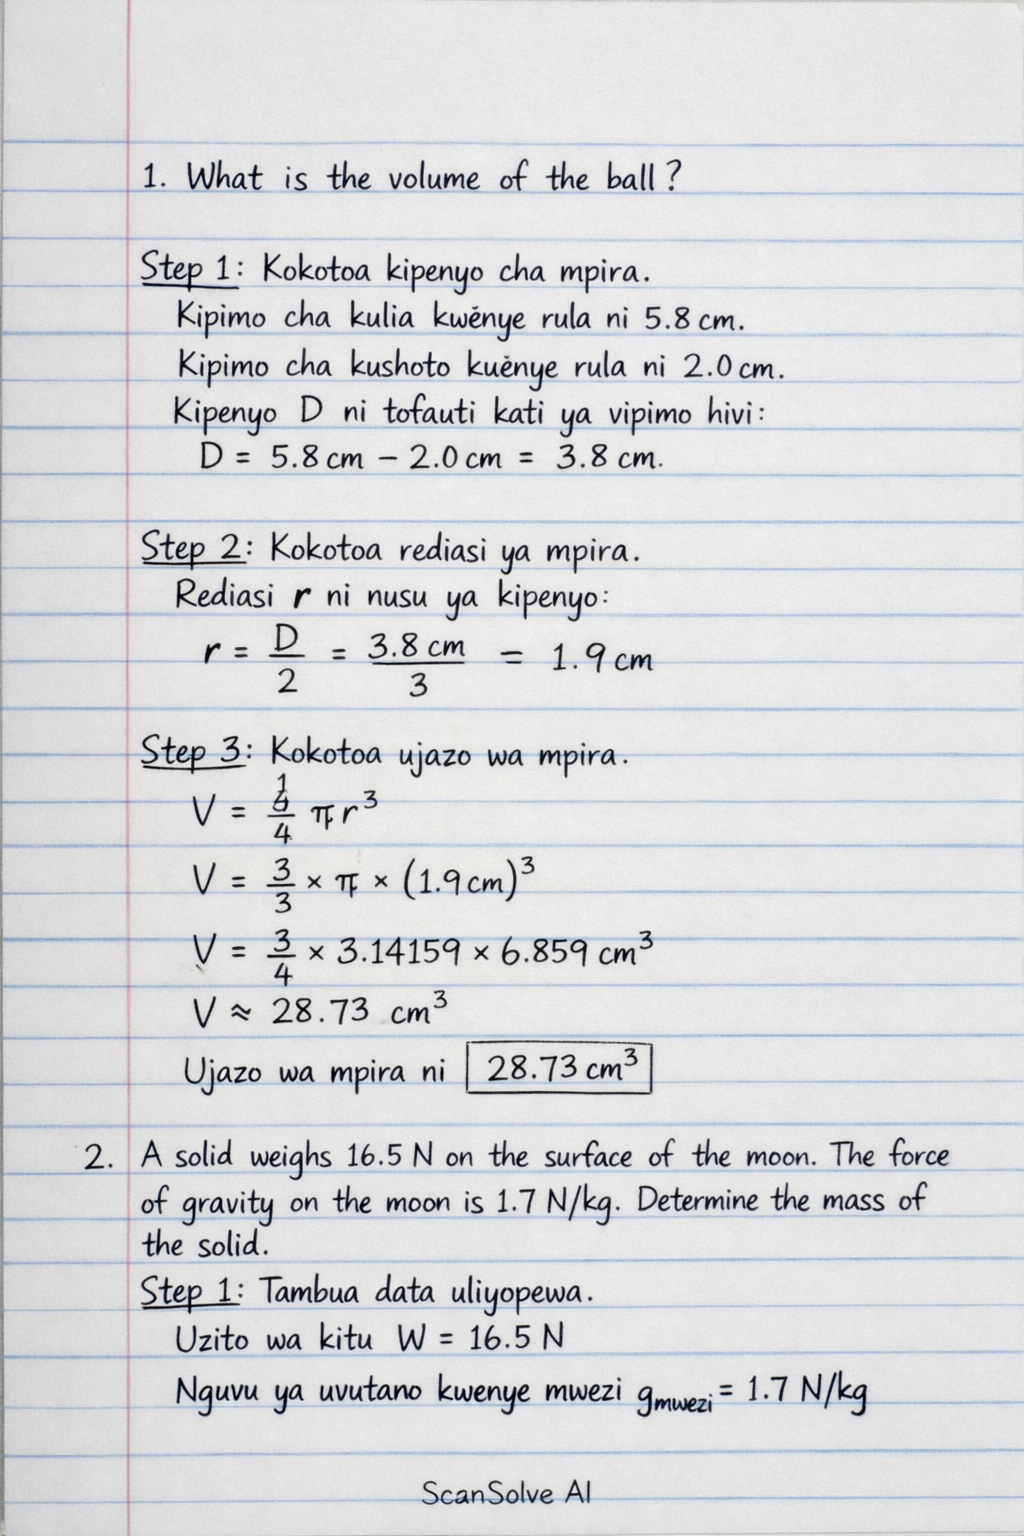 1. What is the volume of the ball?
Step 1: Kokotoa kipenyo cha mpira.
Kipimo cha kulia kwėnye rula ni 5.8 cm.
Kipimo cha kushoto kuėnye rula ni 2.0 cm.
Kipenyo D ni tofauti kati ya vipimo hivi:
D = 5.8 cm − 2.0 cm = 3.8 cm.
Step 2: Kokotoa rediasi ya mpira.
Rediasi r ni nusu ya kipenyo:
r = D/2 = 3.8 cm/3 = 1.9 cm
Step 3: Kokotoa ujazo wa mpira.
V = /4 πr³
V = 3/3 × π × (1.9 cm)³
V = 3/4 × 3.14159 × 6.859 cm³
V ≈ 28.73 cm³
Ujazo wa mpira ni 28.73 cm³
2. A solid weighs 16.5 N on the surface of the moon. The force
of gravity on the moon is 1.7 N/kg. Determine the mass of
the solid.
Step 1: Tambua data uliyopewa.
Uzito wa kitu W = 16.5 N
Nguvu ya uvutano kwenye mwezi gmwezi = 1.7 N/kg
ScanSolve AI